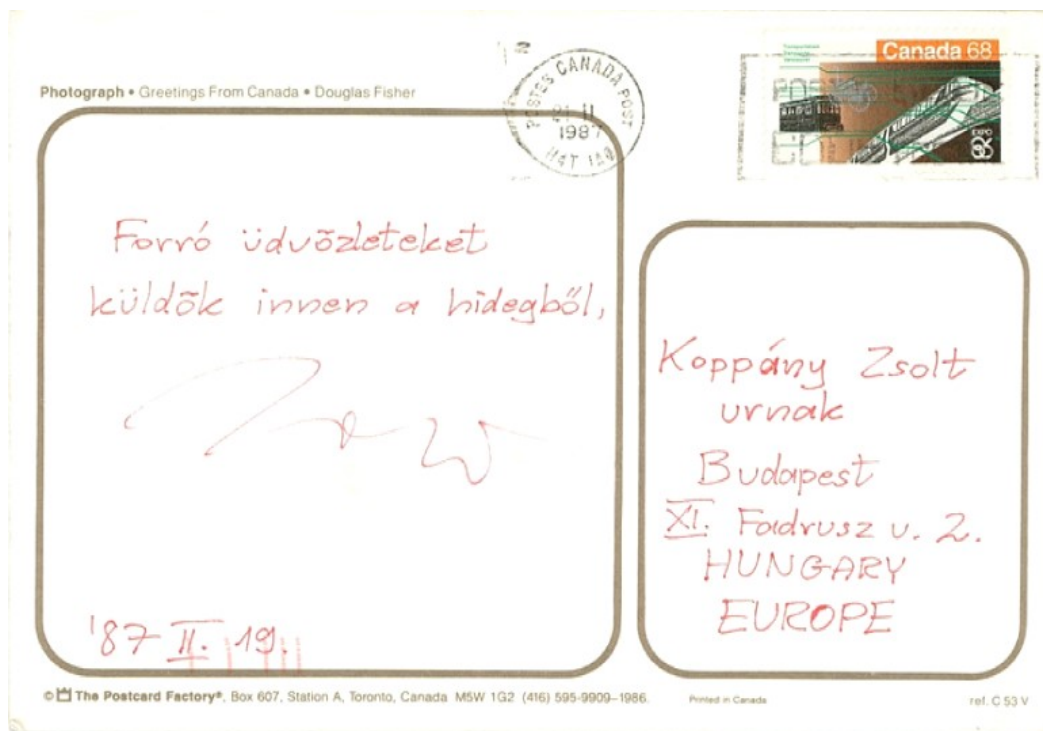 Photograph • Greetings From Canada • Douglas Fisher
POSTES CANADA POST
21 II
1987
H4T 1A0
Canada 68
EXPO
86
Forró üdvözleteket
küldök innen a hidegből,
'87 II. 19.
Koppány Zsolt
urnak
Budapest
XI. Fadrusz u. 2.
HUNGARY
EUROPE
© The Postcard Factory®, Box 607, Station A, Toronto, Canada M5W 1G2 (416) 595-9909–1986.
Printed in Canada
ref. C 53 V